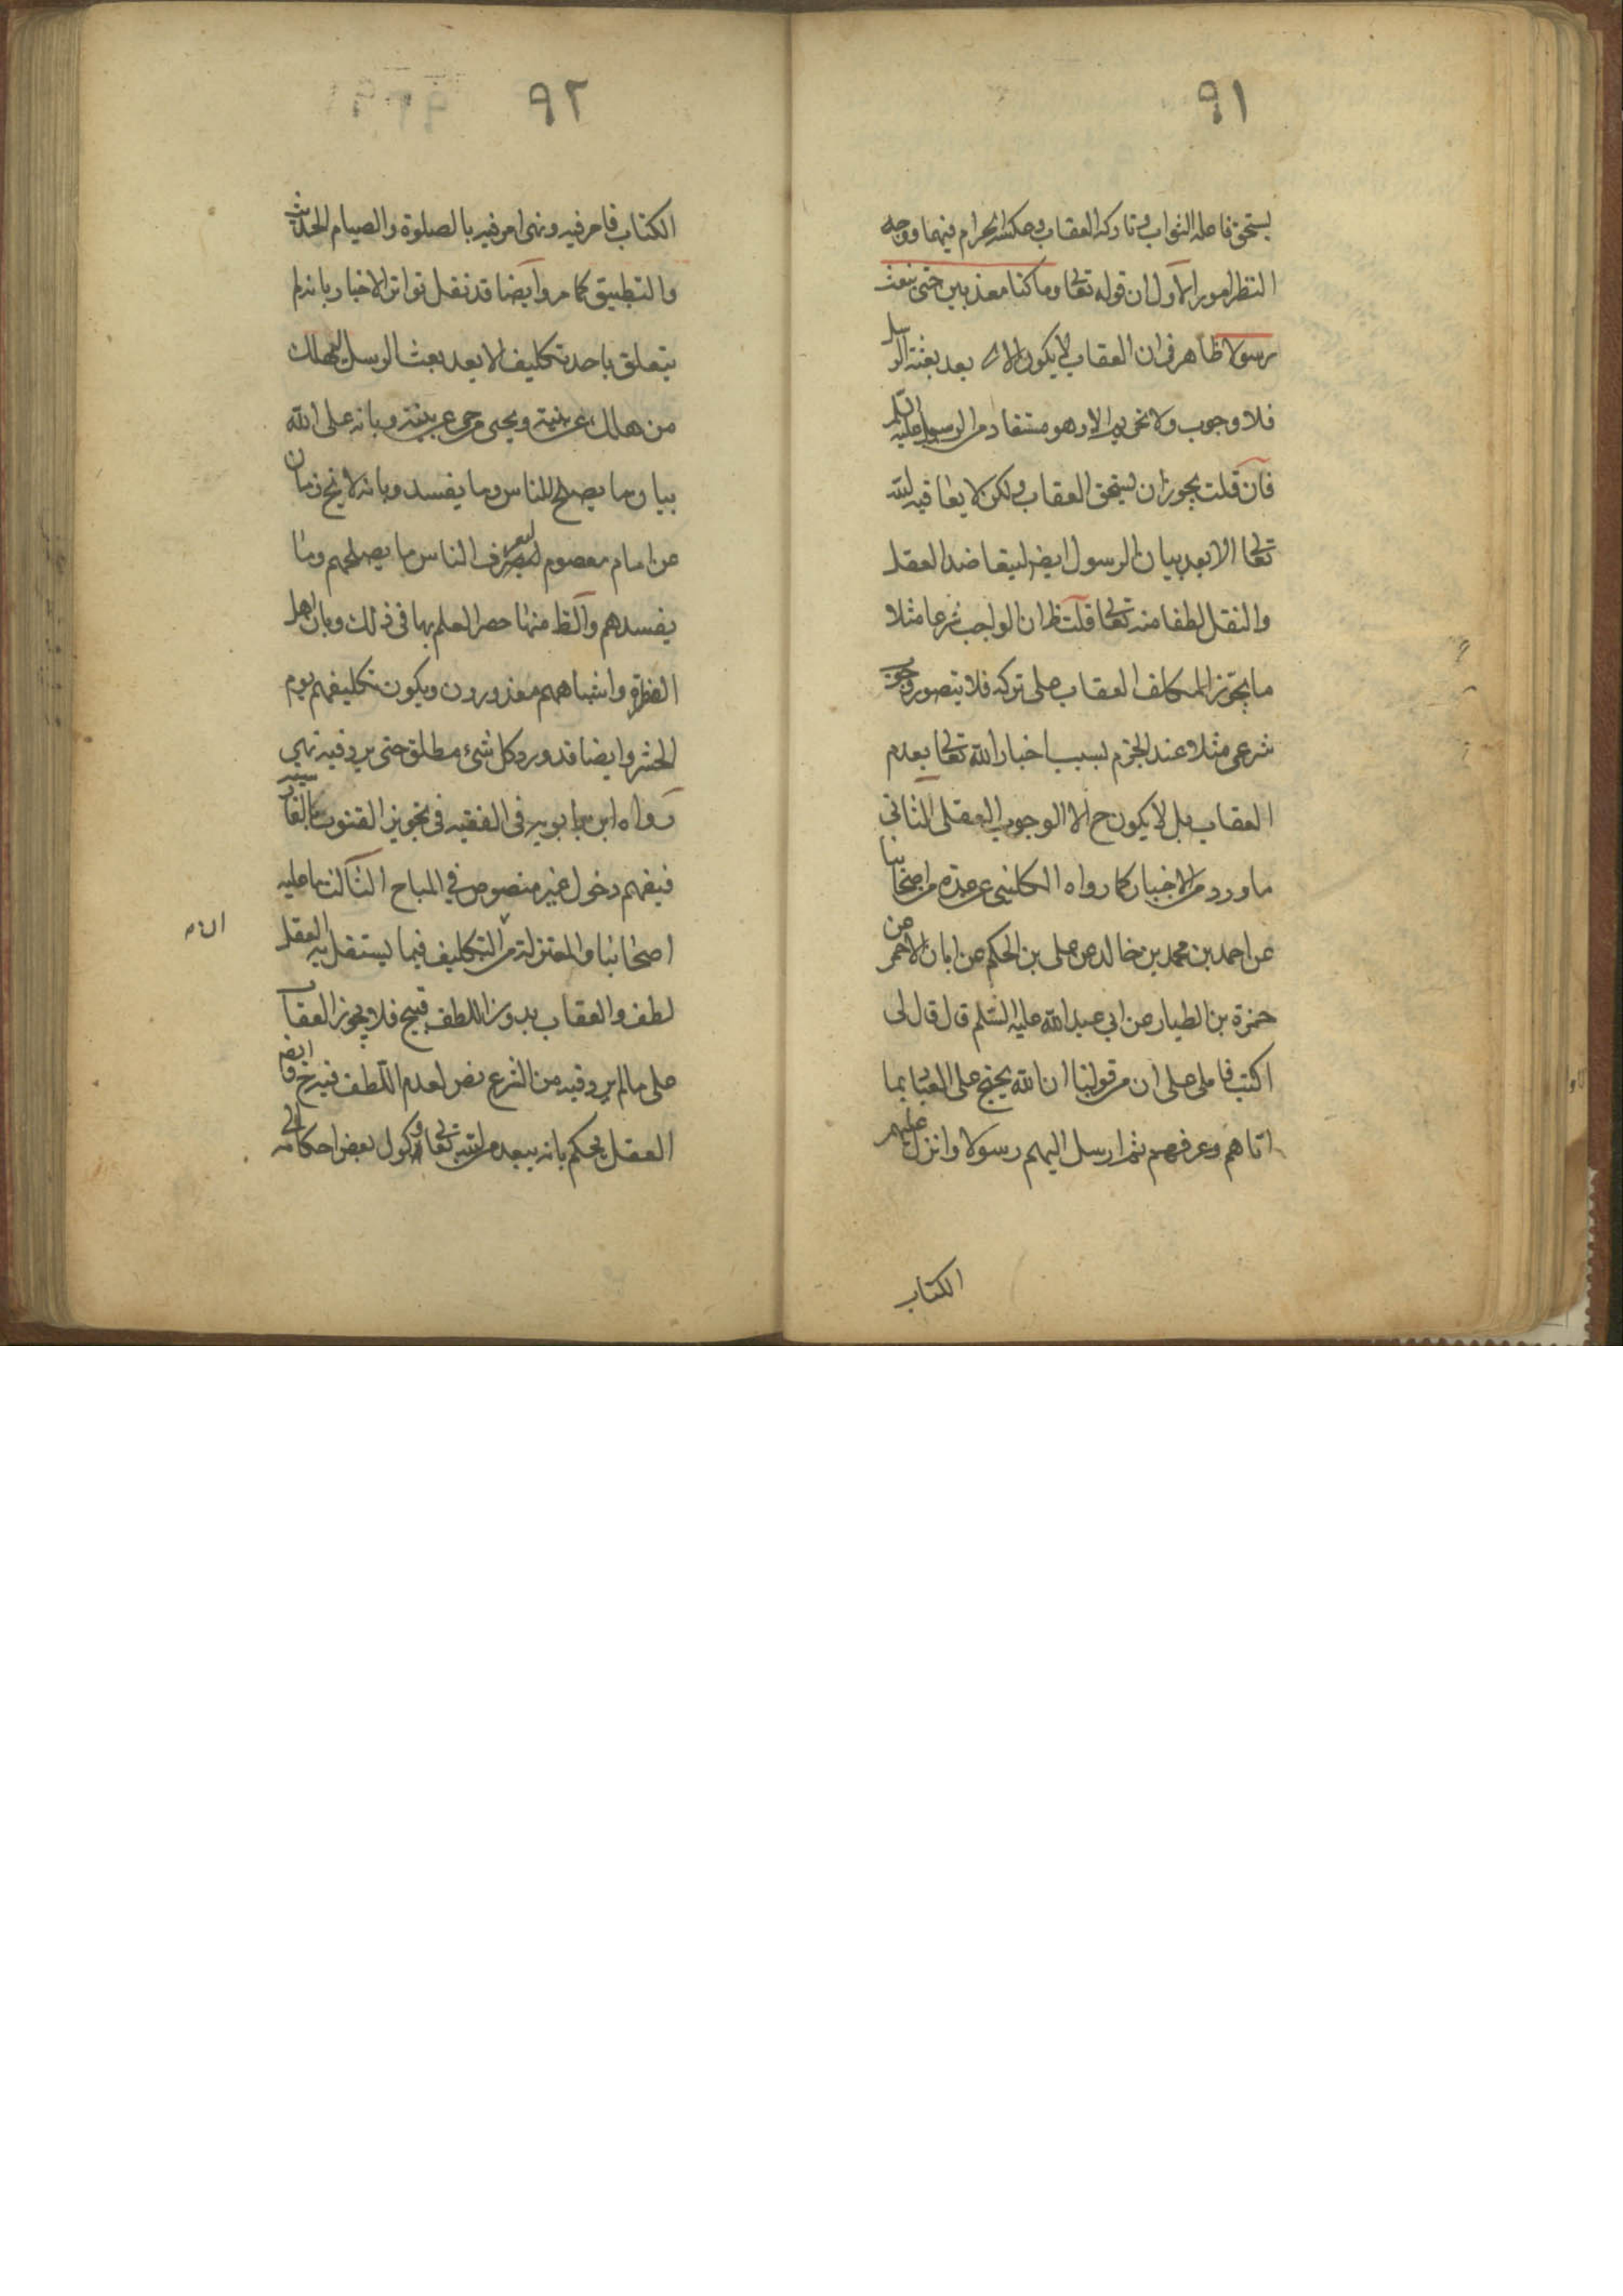 ٩١
يستحق فاعله الثواب وتاركه العقاب وعكسه الحرام فيهما ووجه
النظر امور الاول ان قوله تعالى وما كنا معذبين حتى نبعث
رسولا ظاهر في ان العقاب لا يكون الا بعد بعثة الرسل
فلا وجوب ولا تحريم الا وهو مستفاد من الرسول عليه السلم
فان قلت يجوز ان يستحق العقاب ولكن لا يعاقبه الله
تعالى الا بعد بيان الرسول ايض ليتعاضد العقل
والنقل لطفا منه تعالى قلت ظ ان الواجب شرعا مثلا
ما يجوز المكلف العقاب على تركه فلا يتصور وجوب
شرعي مثلا عند الجزم بسبب اخبار الله تعالى بعدم
العقاب بل لا يكون ح الا الوجوب العقلي الثاني
ما ورد من الاخبار كما رواه الكليني عن عدة من اصحابنا
عن احمد بن محمد بن خالد عن على بن الحكم عن ابان الاحمر عن
حمزة بن الطيار عن ابي عبد الله عليه السلم قال قال لى
اكتب فاملى على ان من قولنا ان الله يحتج على العباد بما
اتاهم وعرفهم ثم ارسل اليهم رسولا وانزل عليهم
الكتاب
٩٢
الكتاب فامر فيه ونهى امر فيه بالصلوة والصيام الحديث
والتطبيق كما مر وايضا قد نقل تواتر الاخبار بانه لم
يتعلق باحد تكليف الا بعد بعث الرسل ليهلك
من هلك عن بينة ويحيى من حى عن بينة وبانه على الله
بيان ما يصلح للناس وما يفسد وبانه لا يخ زمان
عن امام معصوم ليعرف الناس ما يصلحهم وما
يفسدهم والظ منها حصر العلم بها في ذلك وبان اهل
الفترة واشباههم معذورون ويكون تكليفهم يوم
الحشر وايضا قد ورد كل شيء مطلق حتى يرد فيه نهي
رواه ابن بابويه في الفقيه في تجويز القنوت بالفارسية
فيفهم دخول غير منصوص في المباح الثالث ما عليه
اصحابنا والمعتزلة من ان التكليف فيما يستقل به العقل
لطف والعقاب بدون اللطف قبيح فلا يجوز العقاب
على ما لم يرد فيه من الشرع نص لعدم اللطف فيه ح وايض
العقل يحكم بانه يبعد من الله تعالى وكول بعض احكامه الى